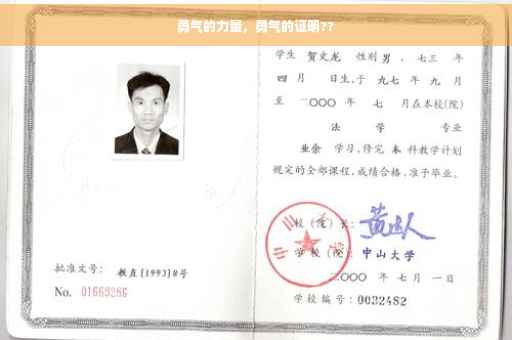 勇气的力量，勇气的证明??
学生 贺文龙 性别 男 、七三 年
四 月 日生,于 九七 年 九 月
至 二〇〇〇 年 七 月在本校(院)
法 学 专业
业余 学习,修完 本 科教学计划
规定的全部课程,成绩合格,准予毕业。
校(院)长:
学校(院): 中山大学
二〇〇〇 年 七月 一日
批准文号: 教直[1993]8号
No. 01669286
学校编号: 0032482